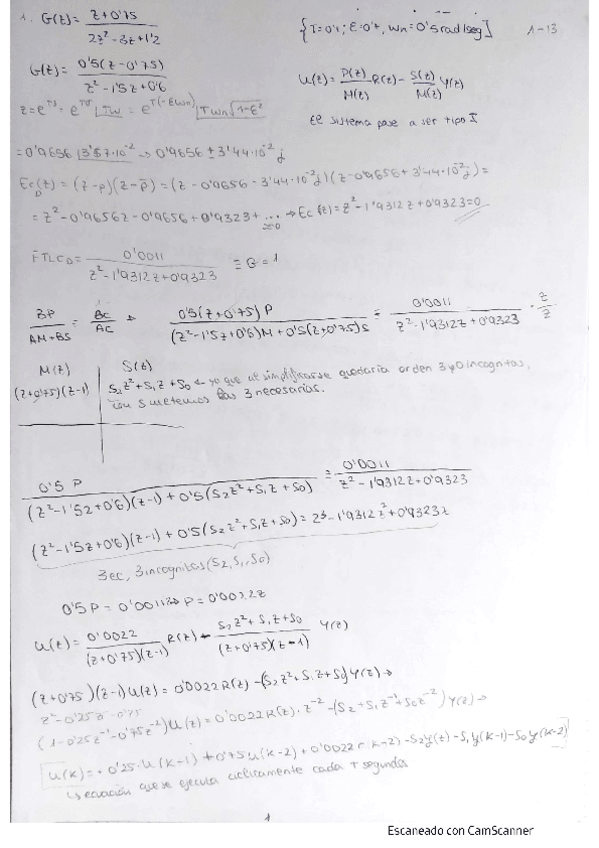 1. G(z) = z+0'75 / 2z²-3z+1'2 {T=0'1; ξ=0'7, Wn=0'5 rad/seg} 1-13
G(z) = 0'5(z-0'75) / z²-1'5z+0'6
U(z) = P(z)/M(z) R(z) - S(z)/M(z) Y(z)
z = e^Ts = e^Tσ |TW = e^T(-ξWn) |T Wn √1-ξ²
el sistema pase a ser tipo I
= 0'9656 |3'57·10^-2 → 0'9656 ± 3'44·10^-2 j
Ec_D(z) = (z-p)(z-p̄) = (z-0'9656-3'44·10^-2 j)(z-0'9656+3'44·10^-2 j) =
= z²-0'9656z-0'9656+0'9323+ ... ≈0 → Ec(z) = z²-1'9312z+0'9323=0
FTLC_D = 0'0011 / z²-1'9312z+0'9323 ≡ G=1
BP / AM+BS = Bc / Ac → 0'5(z+0'75)P / (z²-1'5z+0'6)M+0'5(z+0'75)S = 0'0011 / z²-1'9312z+0'9323 · z/z
M(z) S(z)
(z+0'75)(z-1) S₂z²+S₁z+S₀ ← ya que al simplificarse quedaria orden 3 y 0 incognitas,
en S metemos las 3 necesarias.
0'5 P / (z²-1'5z+0'6)(z-1)+0'5(S₂z²+S₁z+S₀) = 0'0011 / z²-1'9312z+0'9323
(z²-1'5z+0'6)(z-1)+0'5(S₂z²+S₁z+S₀) = z³-1'9312z²+0'9323z
3ec, 3incognitas (S₂, S₁, S₀)
0'5P = 0'0011z → P=0'0022z
U(z) = 0'0022 / (z+0'75)(z-1) R(z) - S₂z²+S₁z+S₀ / (z+0'75)(z-1) Y(z)
(z+0'75)(z-1)U(z) = 0'0022R(z) - (S₂z²+S₁z+S₀)Y(z) →
z²-0'25z-0'75
(1-0'25z^-1-0'75z^-2)U(z) = 0'0022R(z)·z^-2-(S₂+S₁z^-1+S₀z^-2)Y(z) →
U(k) = +0'25·U(k-1)+0'75U(k-2)+0'0022r(k-2)-S₂y(z)-S₁y(k-1)-S₀y(k-2)
↳ ecuación que se ejecuta ciclicamente cada T segundos
1
Escaneado con CamScanner